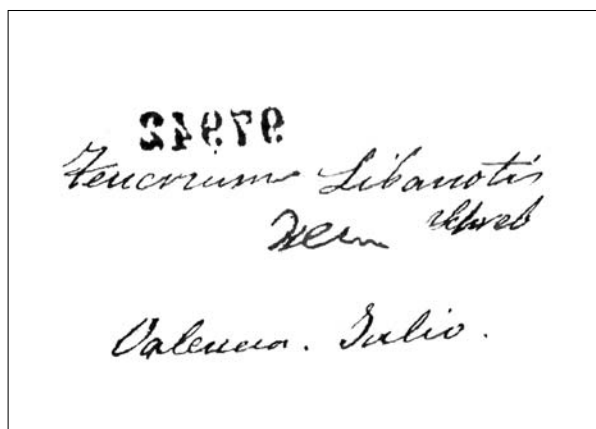 97942
Teucrium Libanotis
Schreb
Valencia. Julio.